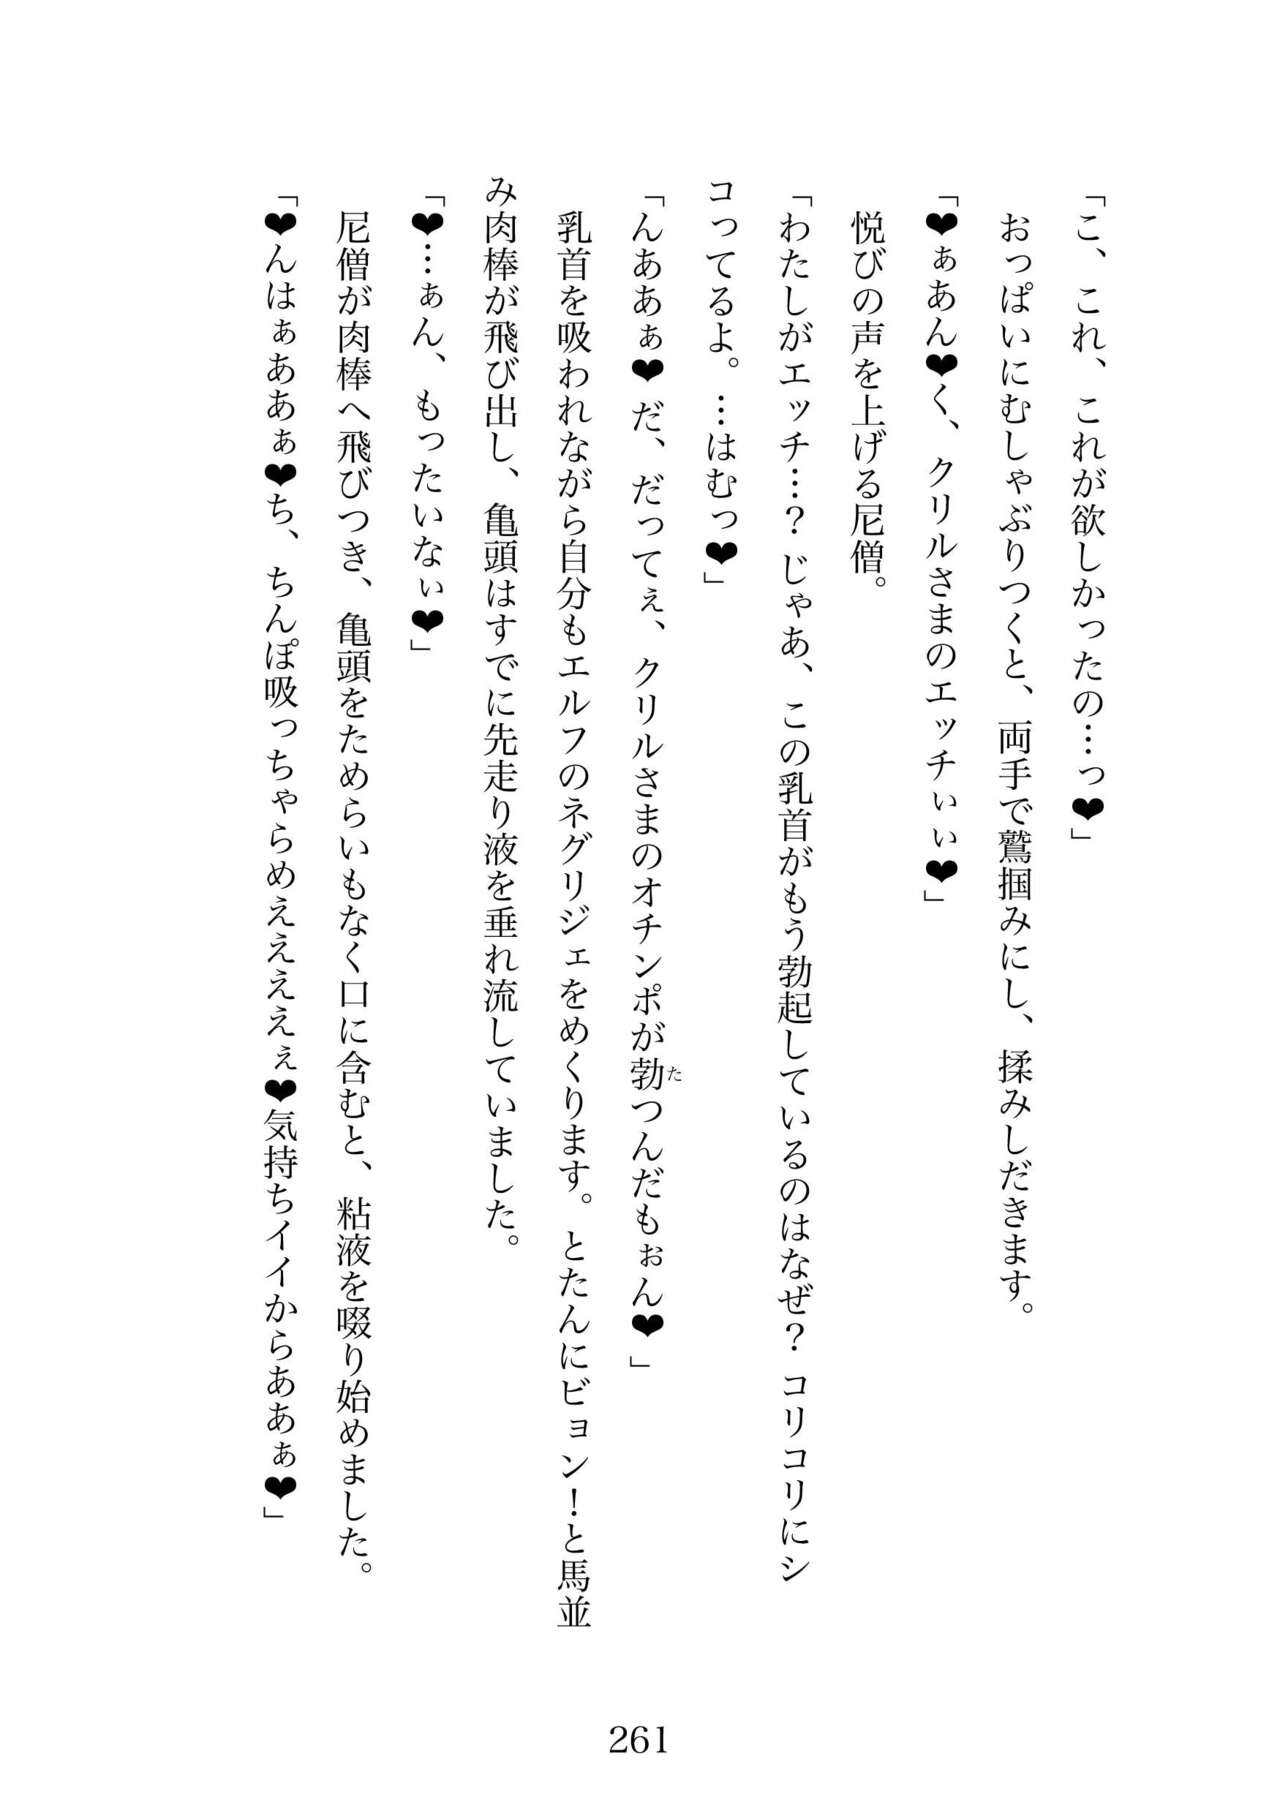 「こ、これ、これが欲しかったの…っ❤」
おっぱいにむしゃぶりつくと、両手で鷲掴みにし、揉みしだきます。
「❤ぁあん❤く、クリルさまのエッチぃぃ❤」
悦びの声を上げる尼僧。
「わたしがエッチ…？じゃあ、この乳首がもう勃起しているのはなぜ？コリコリにシ
コってるよ。…はむっ❤」
「んああぁ❤だ、だってぇ、クリルさまのオチンポが勃つんだもぉん❤」
た
乳首を吸われながら自分もエルフのネグリジェをめくります。とたんにビョン！と馬並
み肉棒が飛び出し、亀頭はすでに先走り液を垂れ流していました。
「❤…ぁん、もったいなぃ❤」
尼僧が肉棒へ飛びつき、亀頭をためらいもなく口に含むと、粘液を啜り始めました。
「❤んはぁああぁ❤ち、ちんぽ吸っちゃらめええええぇ❤気持ちイイからああぁ❤」
261